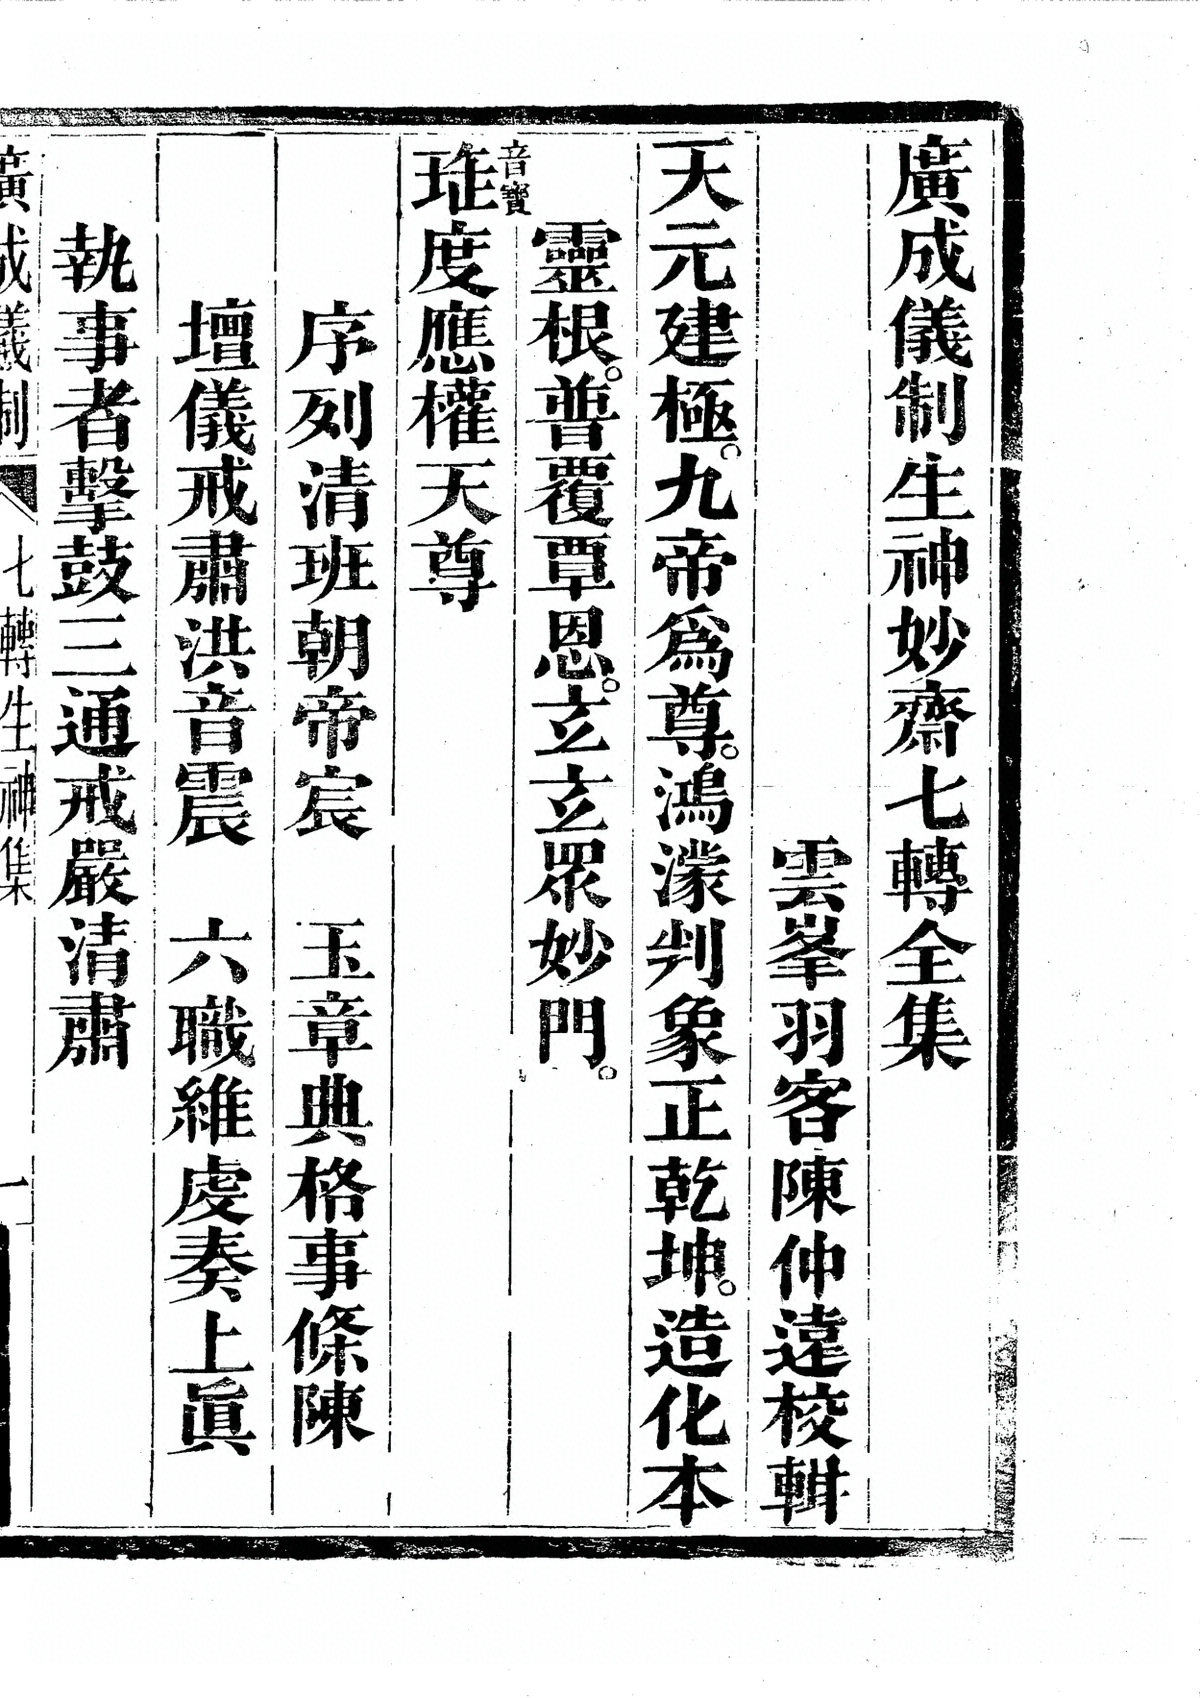 廣成儀制生神妙齋七轉全集
雲峯羽客陳仲遠校輯
天元建極。九帝爲尊。鴻濛判象正乾坤。造化本
靈根。普覆覃恩。玄玄眾妙門。
音寶
琟度應權天尊
序列清班朝帝宸　玉章典格事條陳
壇儀戒肅洪音震　六職維虔奏上眞
執事者擊鼓三通戒嚴清肅
廣成儀制　七轉生神集　一